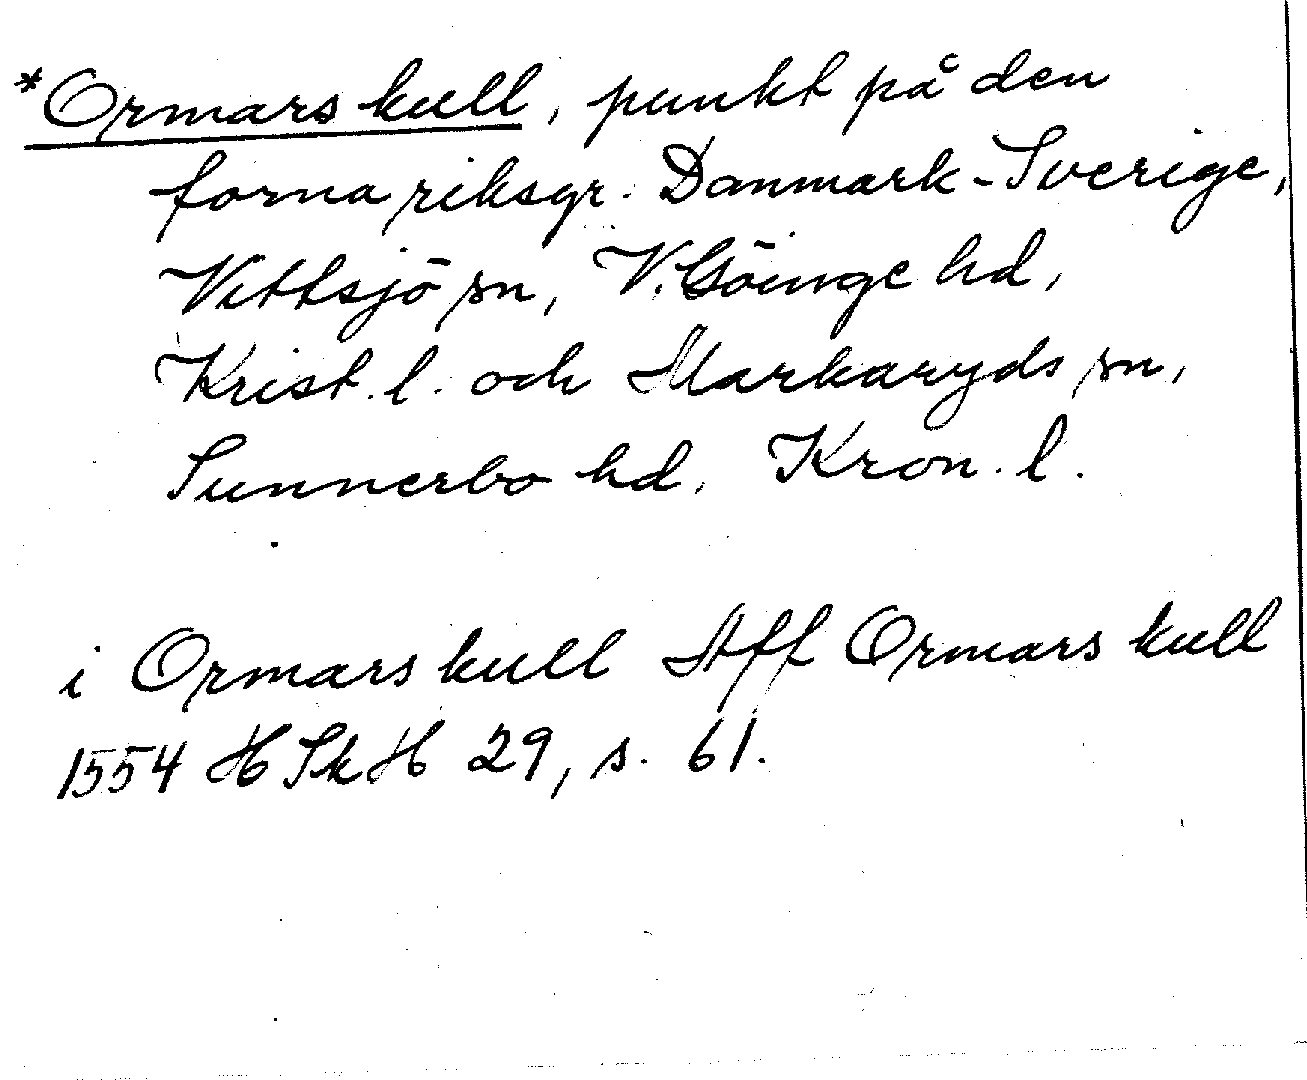 *Ormarskull, punkt på den
forna riksgr. Danmark-Sverige,
Vittsjö sn, V. Göinge hd,
Krist. l. och Markaryds sn,
Sunnerbo hd, Kron. l.
i Ormarskull Aff Ormarskull
1554 HSkH 29, s. 61.